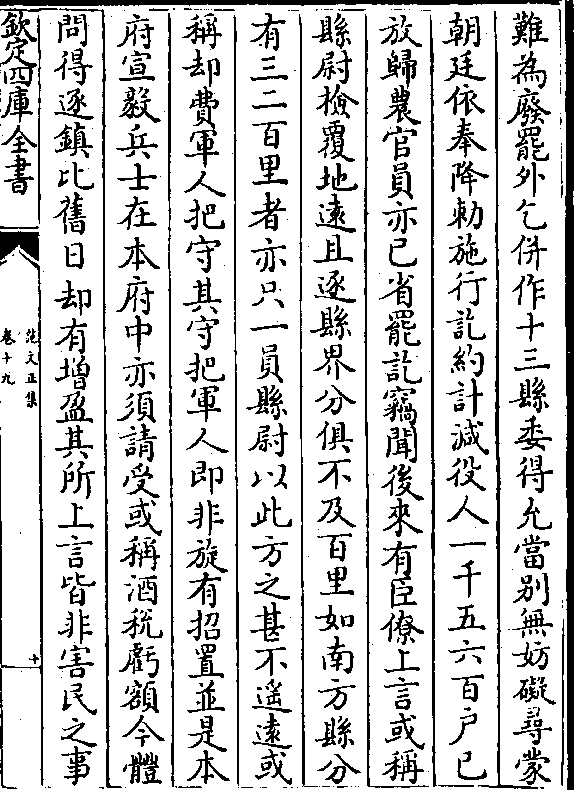 難為廢罷外乞併作十三縣委得允當別無妨礙尋蒙
朝廷依奉降勅施行訖約計減役人一千五六百户已
放歸農官員亦已省罷訖竊聞後來有臣僚上言或稱
縣尉檢覆地遠且逐縣界分俱不及百里如南方縣分
有三二百里者亦只一員縣尉以此方之甚不遥遠或
稱却費軍人把守其守把軍人即非旋有招置並是本
府宣毅兵士在本府中亦須請受或稱酒稅虧額今體
問得逐鎮比舊日却有增盈其所上言皆非害民之事
欽定四庫全書
范文正集
卷十九
十